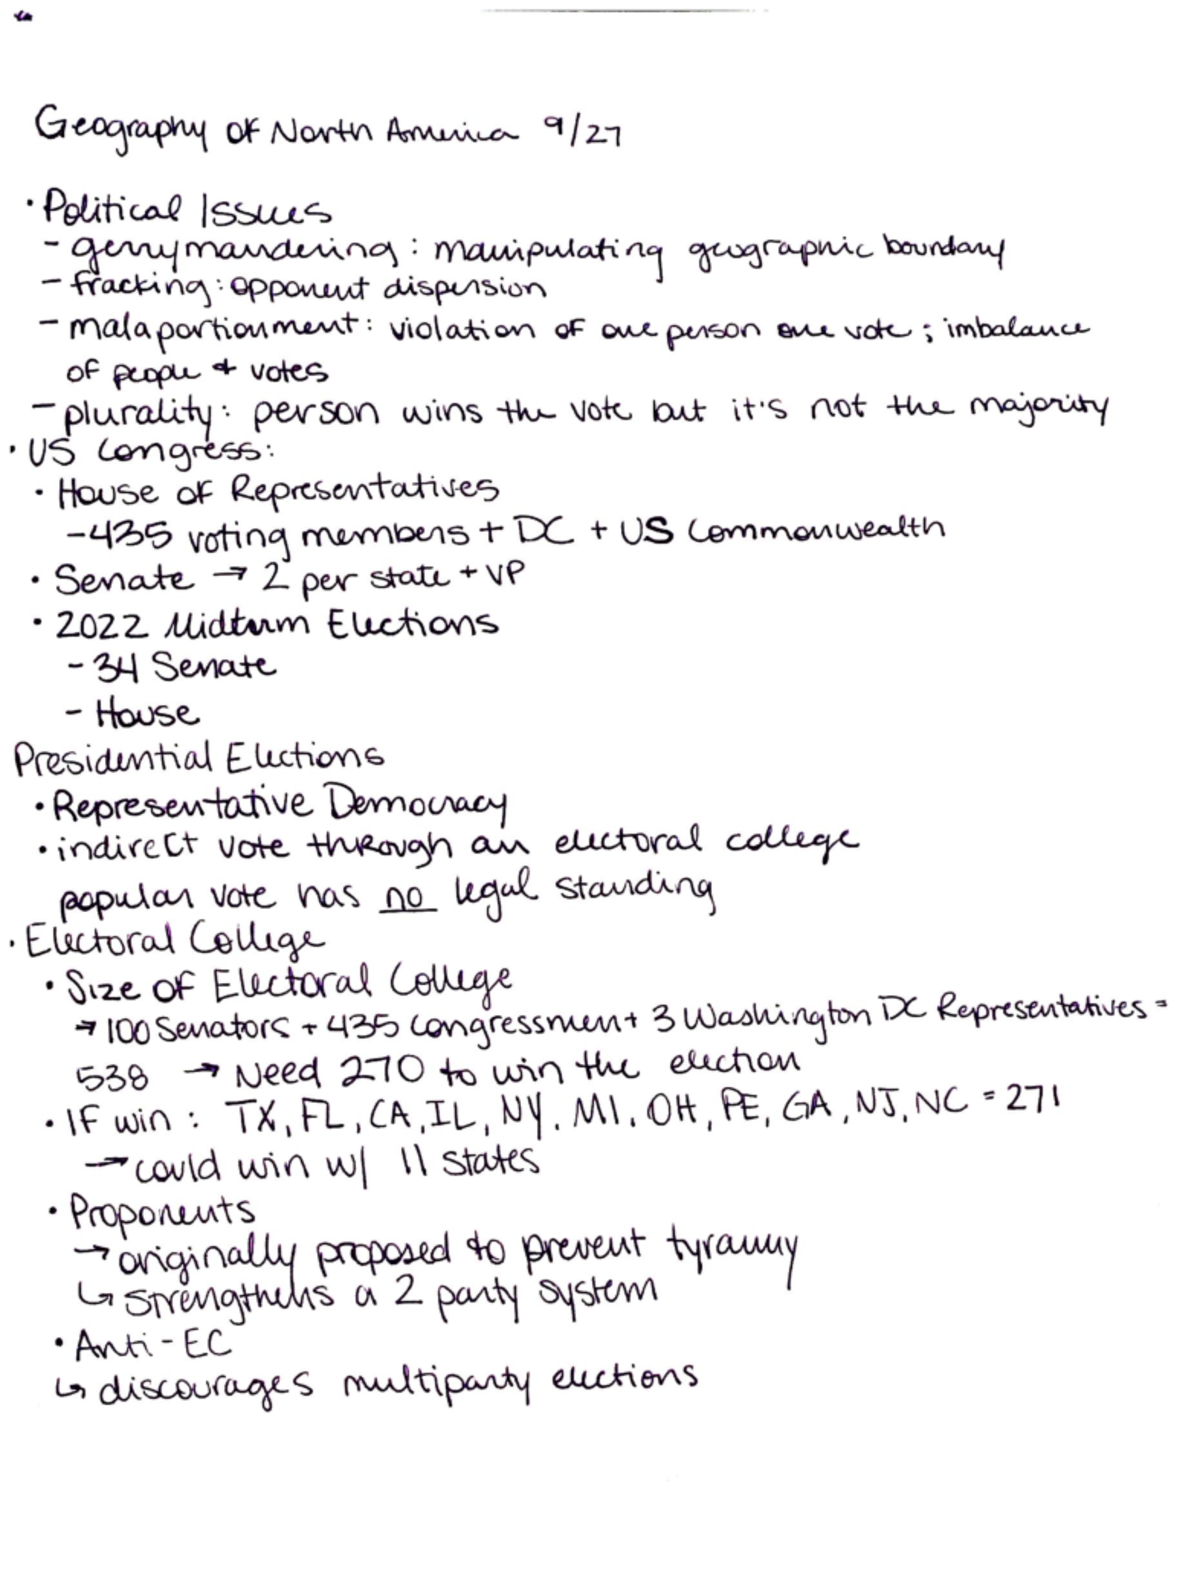 Geography of North America 9/27
· Political Issues
- gerrymandering: manipulating geographic boundary
- fracking: opponent dispersion
- malaportionment: violation of one person one vote; imbalance
of people & votes
- plurality: person wins the vote but it's not the majority
· US Congress:
· House of Representatives
-435 voting members + DC + US Commonwealth
· Senate → 2 per state + VP
· 2022 Midterm Elections
- 34 Senate
- House
Presidential Elections
· Representative Democracy
· indirect vote through an electoral college
popular vote has no legal standing
· Electoral College
· Size of Electoral College
→ 100 Senators + 435 congressmen + 3 Washington DC Representatives =
538 → Need 270 to win the election
· If win: TX, FL, CA, IL, NY, MI, OH, PE, GA, NJ, NC = 271
→ could win w/ 11 states
· Proponents
→ originally proposed to prevent tyranny
↳ strengthens a 2 party system
· Anti-EC
↳ discourages multiparty elections